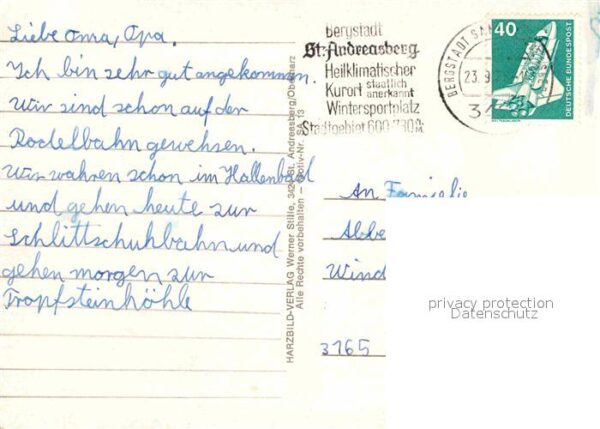 Liebe Oma, Opa.
Ich bin sehr gut angekommen.
Wir sind schon auf der
Rodelbahn gewehsen.
Wir wahren schon im Hallenbad
und gehen heute zur
Schlittschuhbahn und
gehen morgen zur
Tropfsteinhöhle
HARZBILD-VERLAG Werner Stille, 3424 St. Andreasberg/Oberharz
Alle Rechte vorbehalten – Motiv-Nr. SA 13
Bergstadt
St. Andreasberg
Heilklimatischer
Kurort staatlich anerkannt
Wintersportplatz
Stadtgebiet 600/780 ü. M.
BERGSTADT
23.9
34
40
DEUTSCHE BUNDESPOST
An Familie
Abbe
Wind
3165
privacy protection
Datenschutz